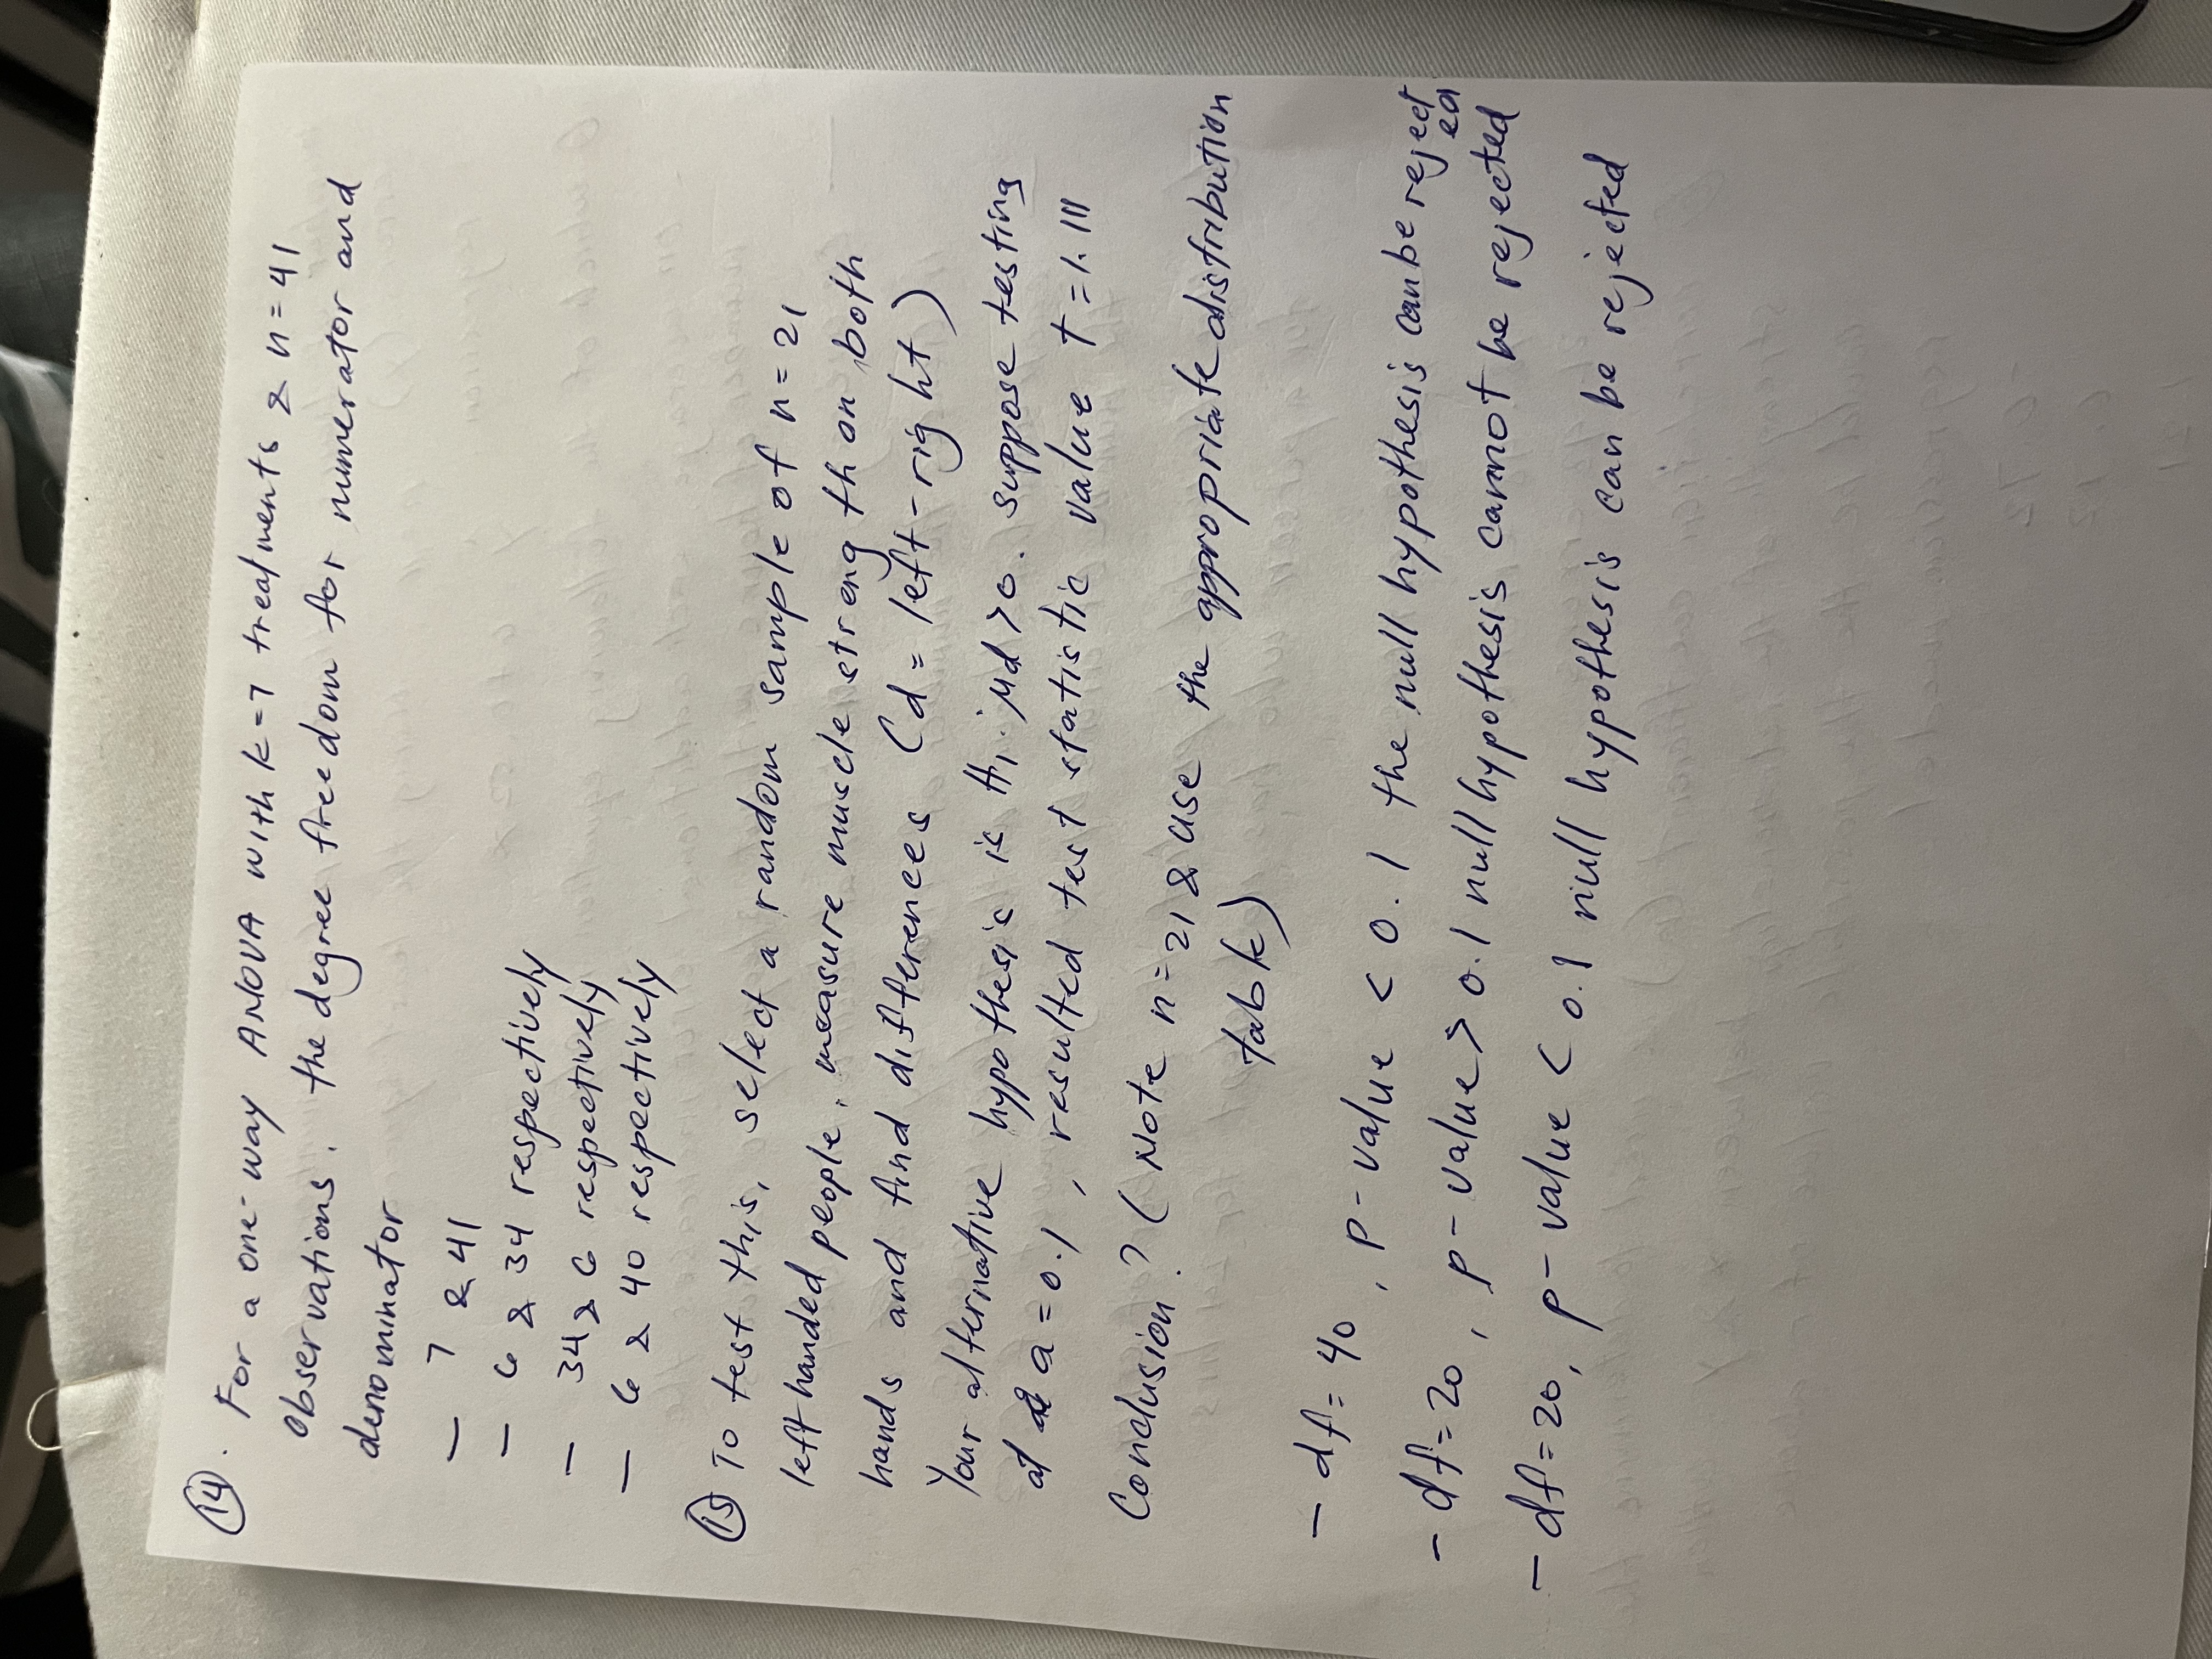 14. For a one-way ANOVA with k=7 treatments & n=41
observations. the degree freedom for numerator and
denominator
- 7 & 41
- 6 & 34 respectively
- 34 & 6 respectively
- 6 & 40 respectively
15 To test this, select a random sample of n=21
left handed people. measure muscle strength on both
hands and find differences (d = left-right)
Your alternative hypothesis is H1: Md>0. suppose testing
at a=0.1, resulted test statistic value t=1.111
Conclusion? (Note n=21 & use the appropriate distribution
table)
- df=40, p-value < 0.1 the null hypothesis can be rejected
- df=20, p-value > 0.1 null hypothesis cannot be rejected
- df=20, p-value < 0.1 null hypothesis can be rejected